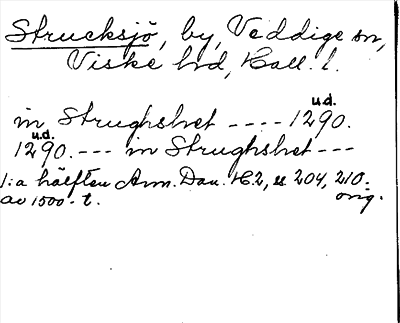 Strucksjö, by, Veddige sn,
Viske hd, Hall. l.
u.d.
in Strughshet ---- 1290.
u.d.
1290. --- in Strughshet ---
1:a hälften Ann. Dan. H.2, s 204, 210.
av 1500-t. orig.